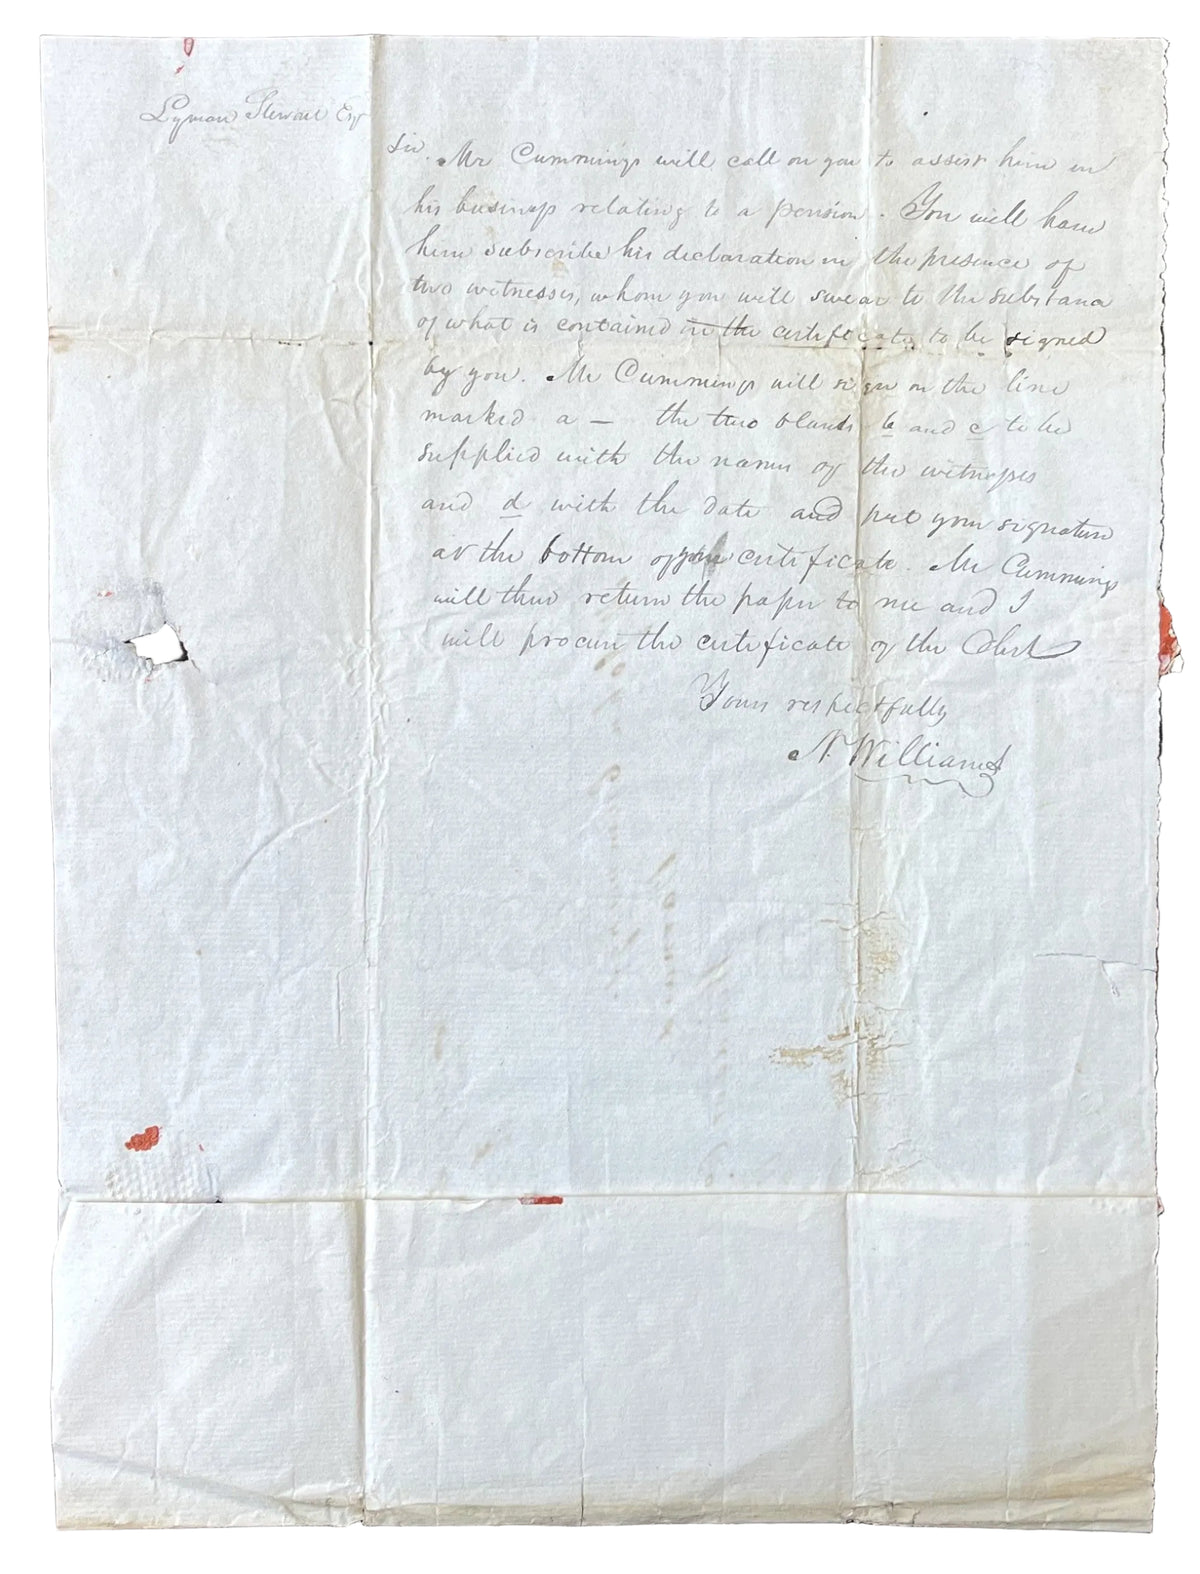 Lyman Stewart Esqr
Sir. Mr Cummings will call on you to assist him in
his business relating to a pension. You will have
him subscribe his declaration in the presence of
two witnesses, whom you will swear to the substance
of what is contained in the certificate to be signed
by you. Mr Cummings will sign on the line
marked a — the two blanks b and c to be
supplied with the names of the witnesses
and d with the date and put your signature
at the bottom of your certificate. Mr Cummings
will then return the paper to me and I
will procure the certificate of the Clerk
Yours respectfully
N. Williams